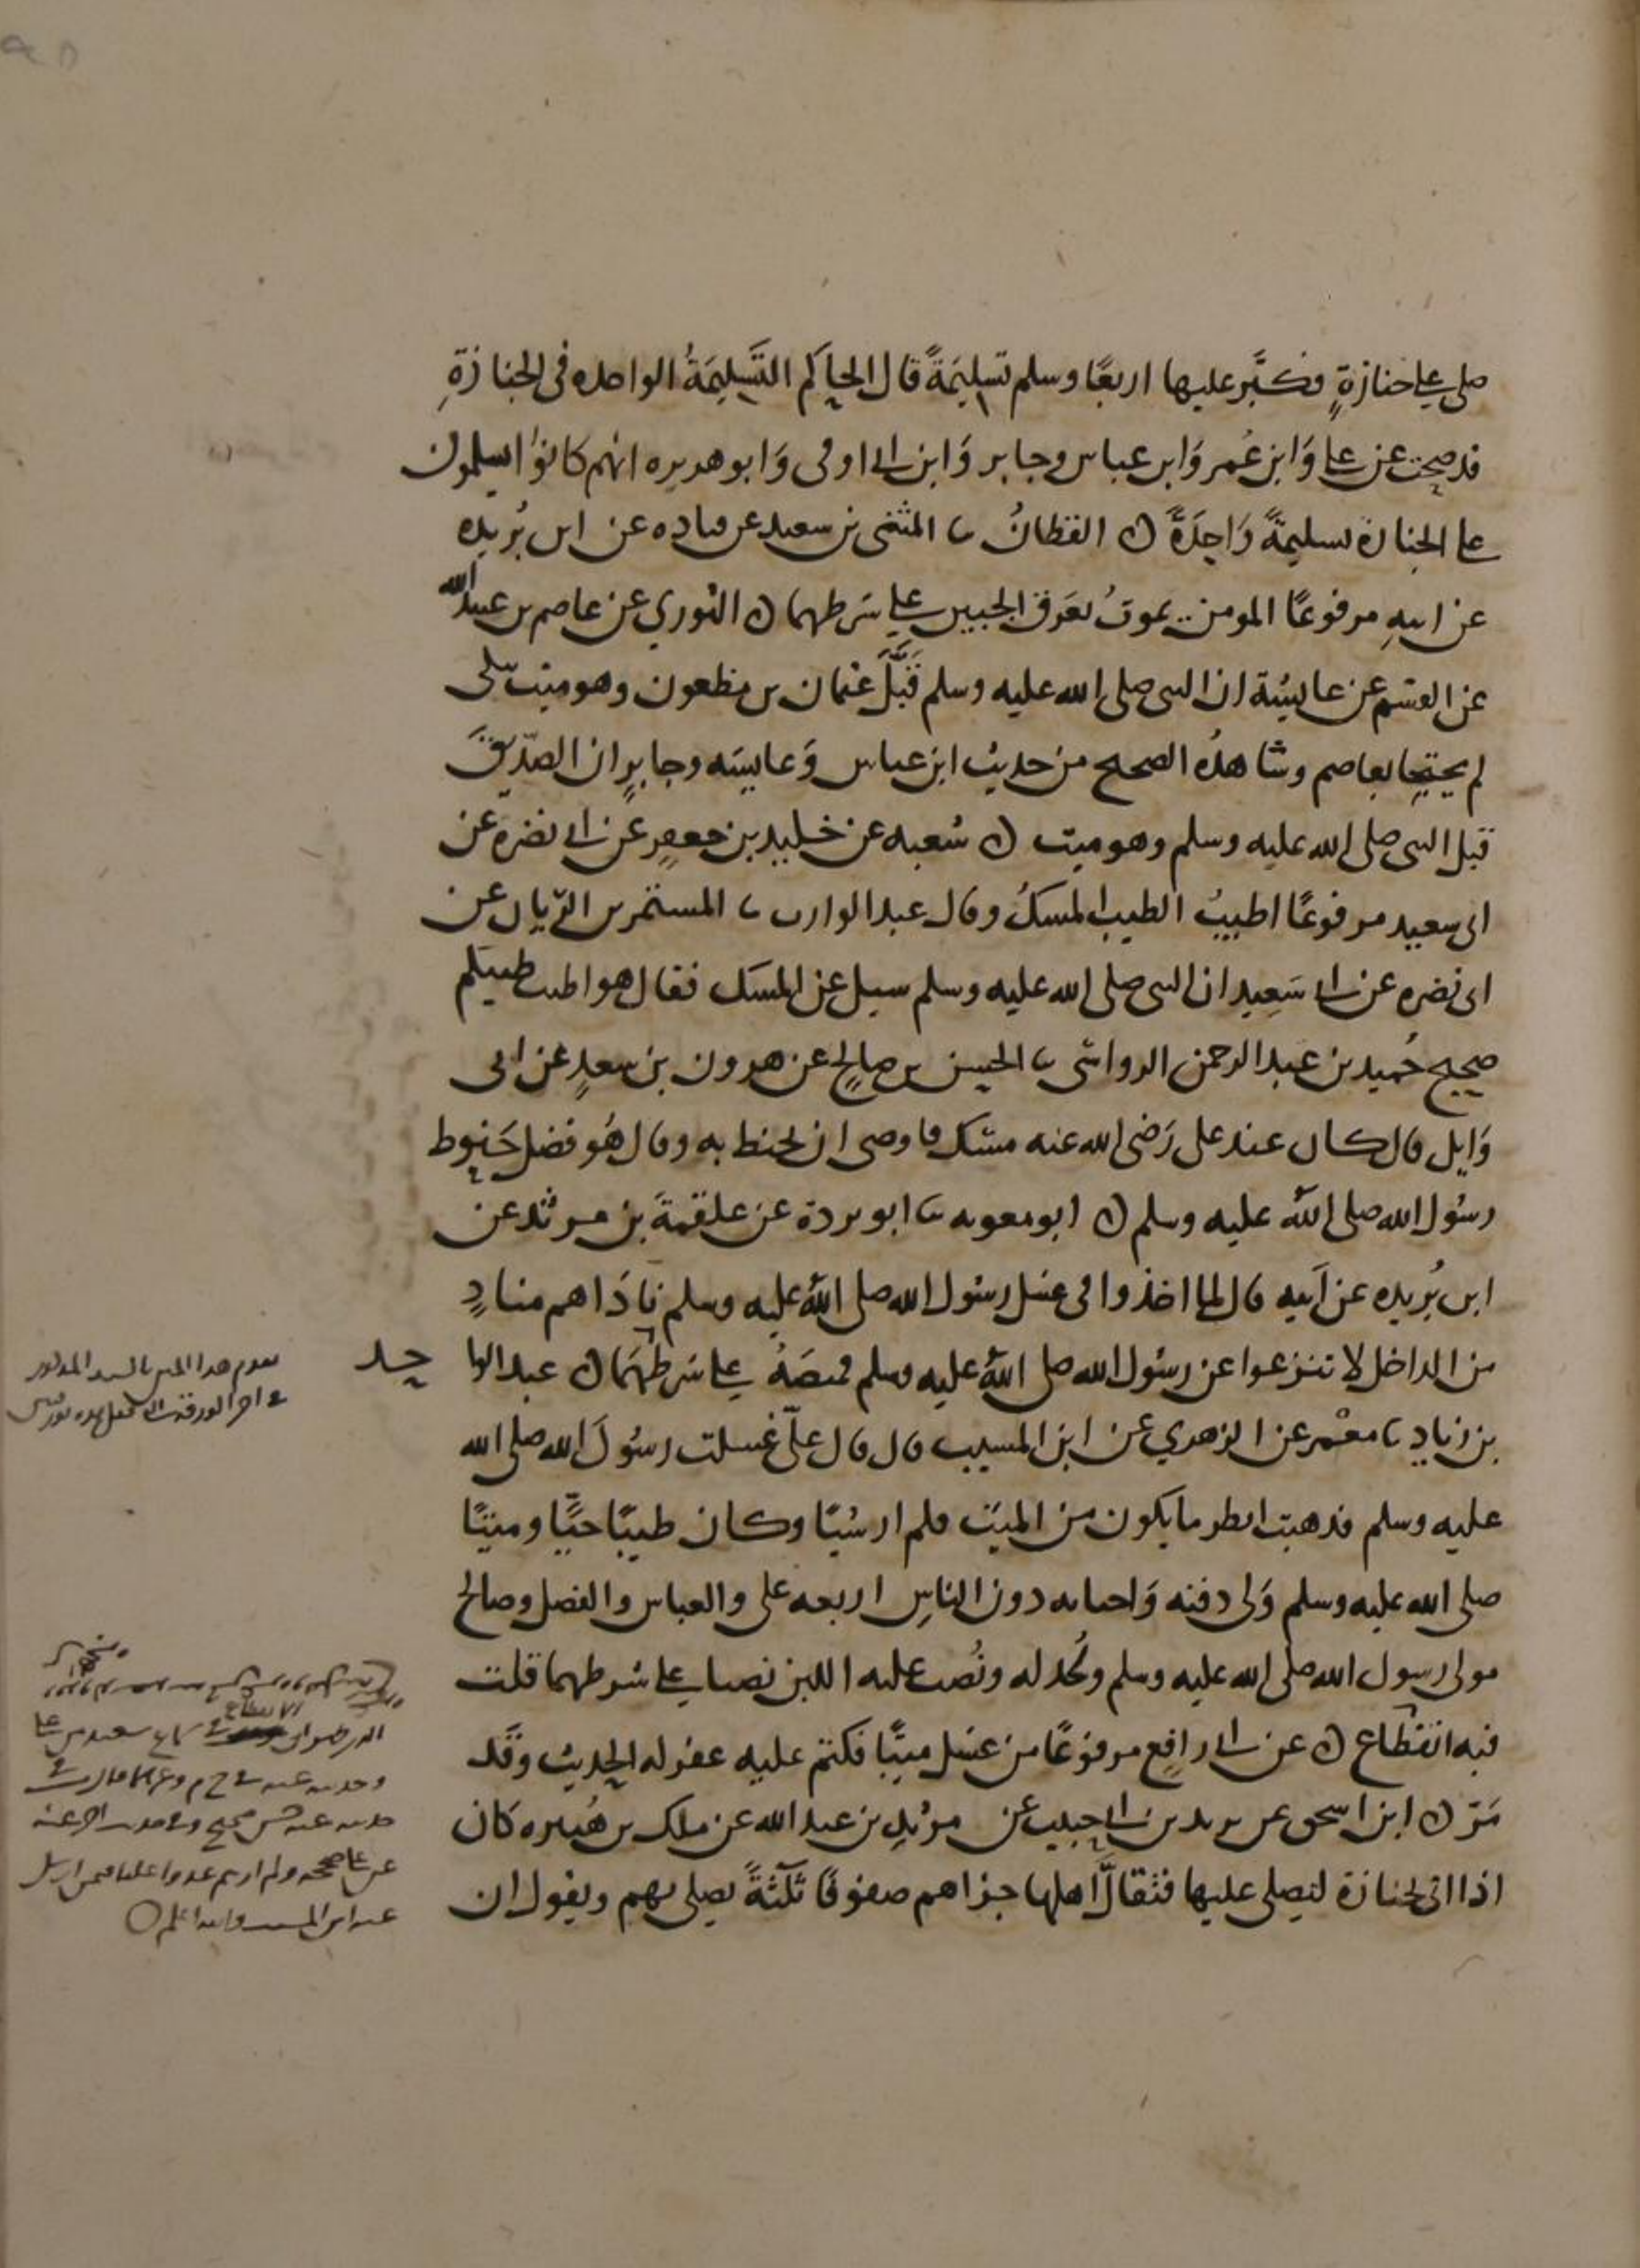 صلى على جنازةٍ فكبَّر عليها اربعًا وسلم تسليمَةً قال الحاكم التَسَّليمَةُ الواحده فى الجنازةِ
قد صحت عن على وَابن عُمر وَابن عباس وجابر وَابن ابى اوفى وَابو هريره انهم كانوا يسلمون
على الجنازة تسليمةً وَاحِدَةً ن القطانُ ثنا المثنى بن سعيد عن قتاده عن ابن بُريده
عن ابيهِ مرفوعًا المومن يموتُ بعَرق الجبين على شرطهما ن الثوري عن عاصم بن عبيد الله
عن القسم عن عايشة ان النبى صلى الله عليه وسلم قَبَّلَ عثمان بن مظعون وهو ميت
لم يحتجا بعاصم وشاهدُه الصحيح من حديث ابن عباس وَعايشه وجابرٍ ان الصدّيقَ
قبل النبى صلى الله عليه وسلم وهو ميت ن شعبه عن خليد بن جعفرٍ عن ابى نضره عن
ابى سعيد مرفوعًا اطيبُ الطيب المسكُ وقال عبد الوارث ثنا المستمر بن الريّان عن
ابى نضره عن ابى سَعِيد ان النبى صلى الله عليه وسلم سيل عن المسك فقال هو اطيب طيبكم
صحيح حُميد بن عبد الرحمن الرواسى ثنا الحسن بن صالحٍ عن هرون بن سعدٍ عن ابى
وَايل قال كان عند على رَضى الله عنه مسْك فاوصى ان يحنط به وقال هُو فضل حَنوط
رسُول الله صلى اللهُ عليه وسلم ن ابو معويه ثنا ابو بردة عن علقمةَ بن مرثد عن
ابن بُريده عن اَبيه قال لما اخذوا فى غسل رسُول الله صلى اللهُ عليه وسلم نادَاهم منادٍ
من الداخل لا تنزعوا عن رسُول الله صلى اللهُ عليه وسلم قميصَهُ على شرطهُمَا ن عبد الوا حد
بن زيادٍ ثنا معْمر عن الزهري عن ابن المسيب قال قال علىّ غسلت رسُولَ الله صلى الله
عليه وسلم فذهبت انظر ما يكون من الميّت فلم ار شيًا وكان طيبًا حيًّا وميتًا
صلى الله عليه وسلم وَلى دفنه وَاجنانه دون الناسِ اربعه على والعباس والفضل وصالح
مولى رسول الله صلى الله عليه وسلم ولُحد له ونُصب عليه اللبن نصبا على شرطهما قلت
فيه انقطاع ن عن ابى رافعٍ مرفوعًا من غسل ميتًا فكتم عليه غفر له الحديث وَقَد
مَرّ ن ابن اسحق عن يزيد بن ابى حبيب عن مرثدِ بن عبد الله عن ملك بن هُبيره كان
اذا اتى بجنازة ليصلى عليها فتقالَّ اهلها جزاهم صفوفًا ثلَثةً يصلى بهم ويقول ان
تقدم هذا المتن بالسند المذكور